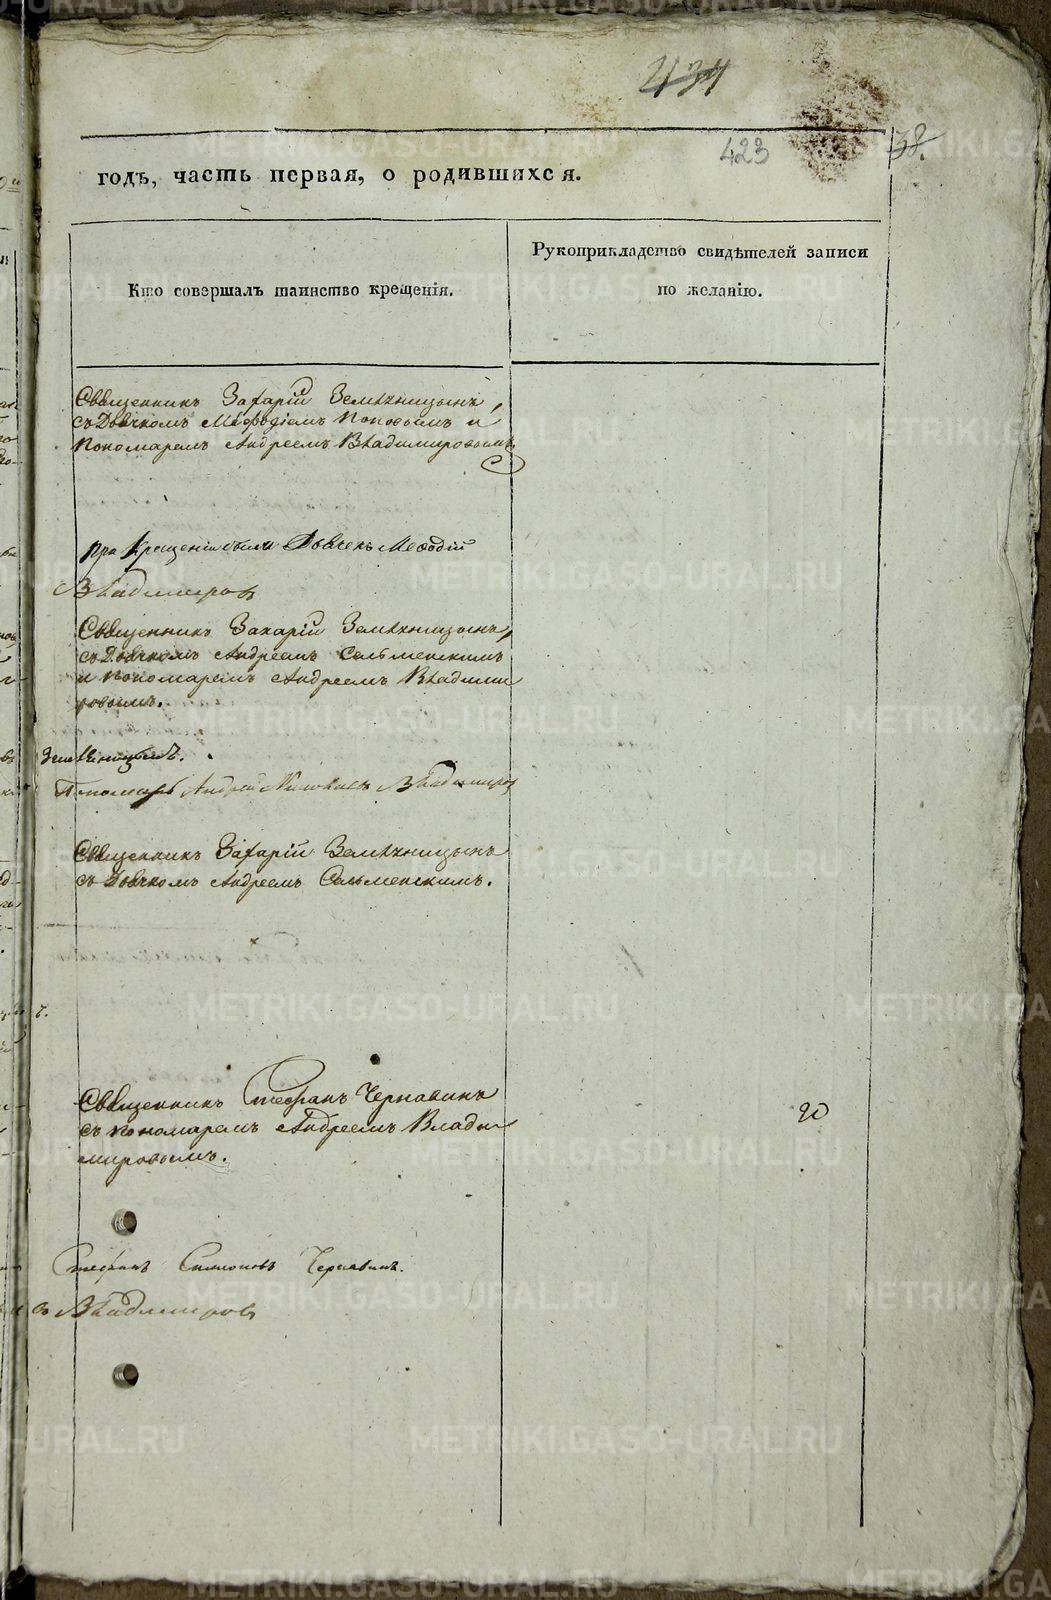 434
423
38.
годъ, часть первая, о родившихся.
Кто совершалъ таинство крещенія.
Рукоприкладство свидѣтелей записи
по желанію.
Священникъ Захарій Земляницынъ,
съ Дьячкомъ Меѳодіемъ Поповымъ и
Пономаремъ Андреемъ Владимировымъ
при Крещеніи были Дьячекъ Меѳодій
Владимиров
Священникъ Захарій Земляницынъ,
съ Дьячкомъ Андреемъ Сельменскимъ
и пономаремъ Андреемъ Владими
ровымъ.
Земляницынъ.
Пономарь Андрей Владимиров
Священникъ Захарій Земляницынъ
съ Дьячкомъ Андреемъ Сельменскимъ.
Священникъ Стефанъ Чернавинъ
съ пономаремъ Андреемъ Влади
мировымъ.
20
Стефанъ Симеоновъ Чернавинъ.
Владимиров
METRIKI.GASO-URAL.RU